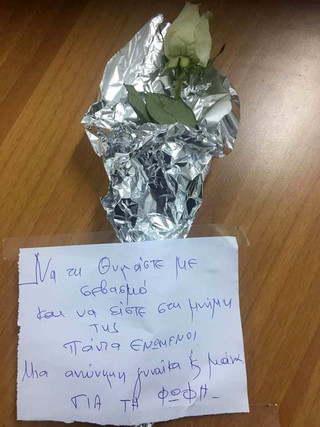 Να τη Θυμάστε με
σεβασμό
και να είστε στη μνήμη
της
Πάντα ΕΝΩΜΕΝΟΙ
Μια ανώνυμη γυναίκα & μάνα
ΓΙΑ ΤΗ ΦΩΦΗ